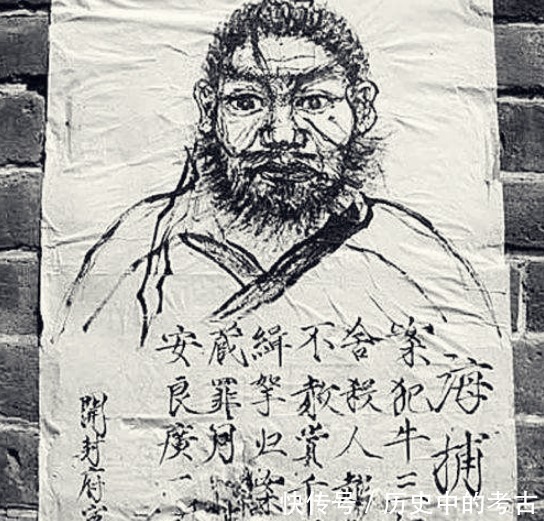 海捕
案犯牛二
舍殺人
不赦賞
緝拏归案
藏罪同
安良廣
開封府
快传号 / 历史中的考古